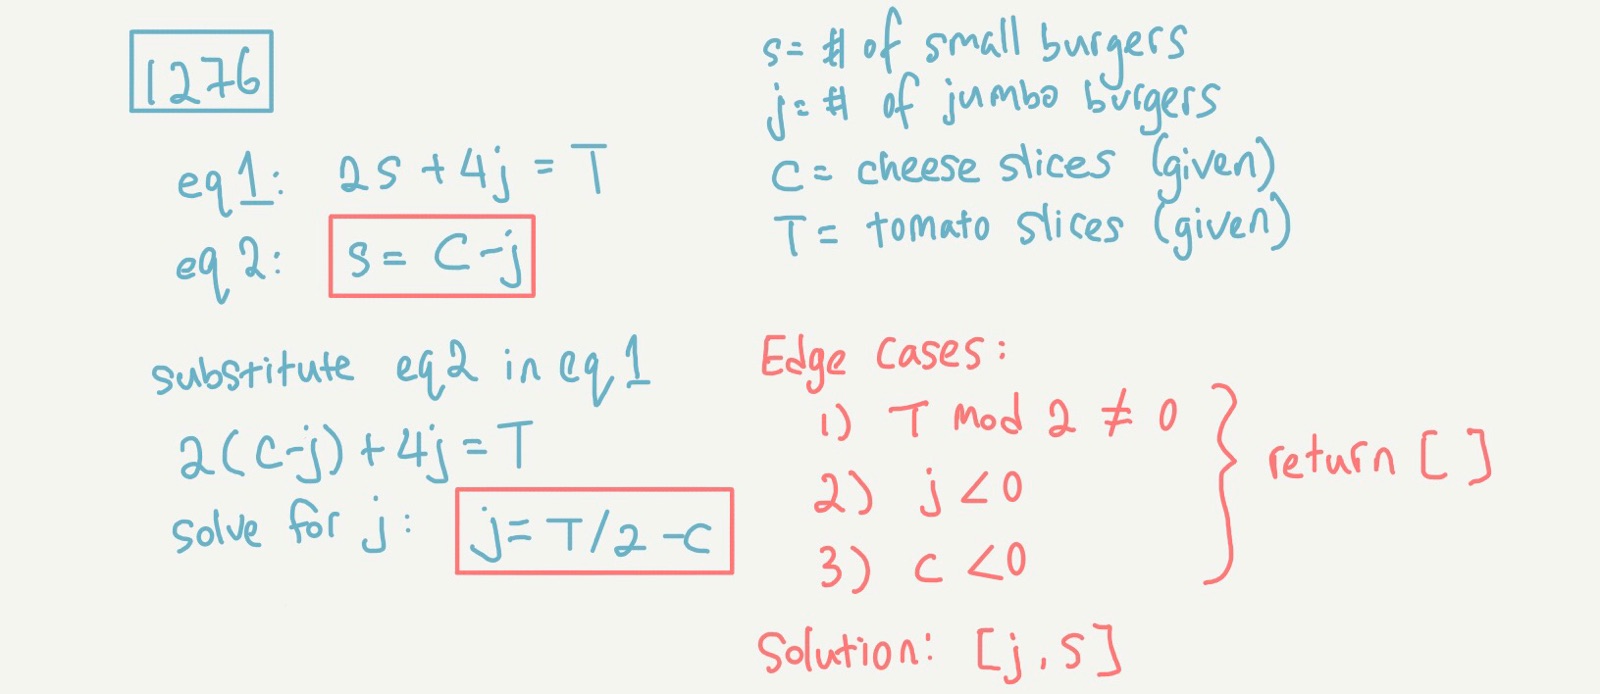 1276
eq1: 2s + 4j = T
eq2: s = C-j
substitute eq2 in eq1
2(c-j) + 4j = T
solve for j: j = T/2 - c
s = # of small burgers
j = # of jumbo burgers
C = cheese slices (given)
T = tomato slices (given)
Edge cases:
1) T mod 2 ≠ 0
2) j < 0
3) c < 0
return [ ]
Solution: [j, s]